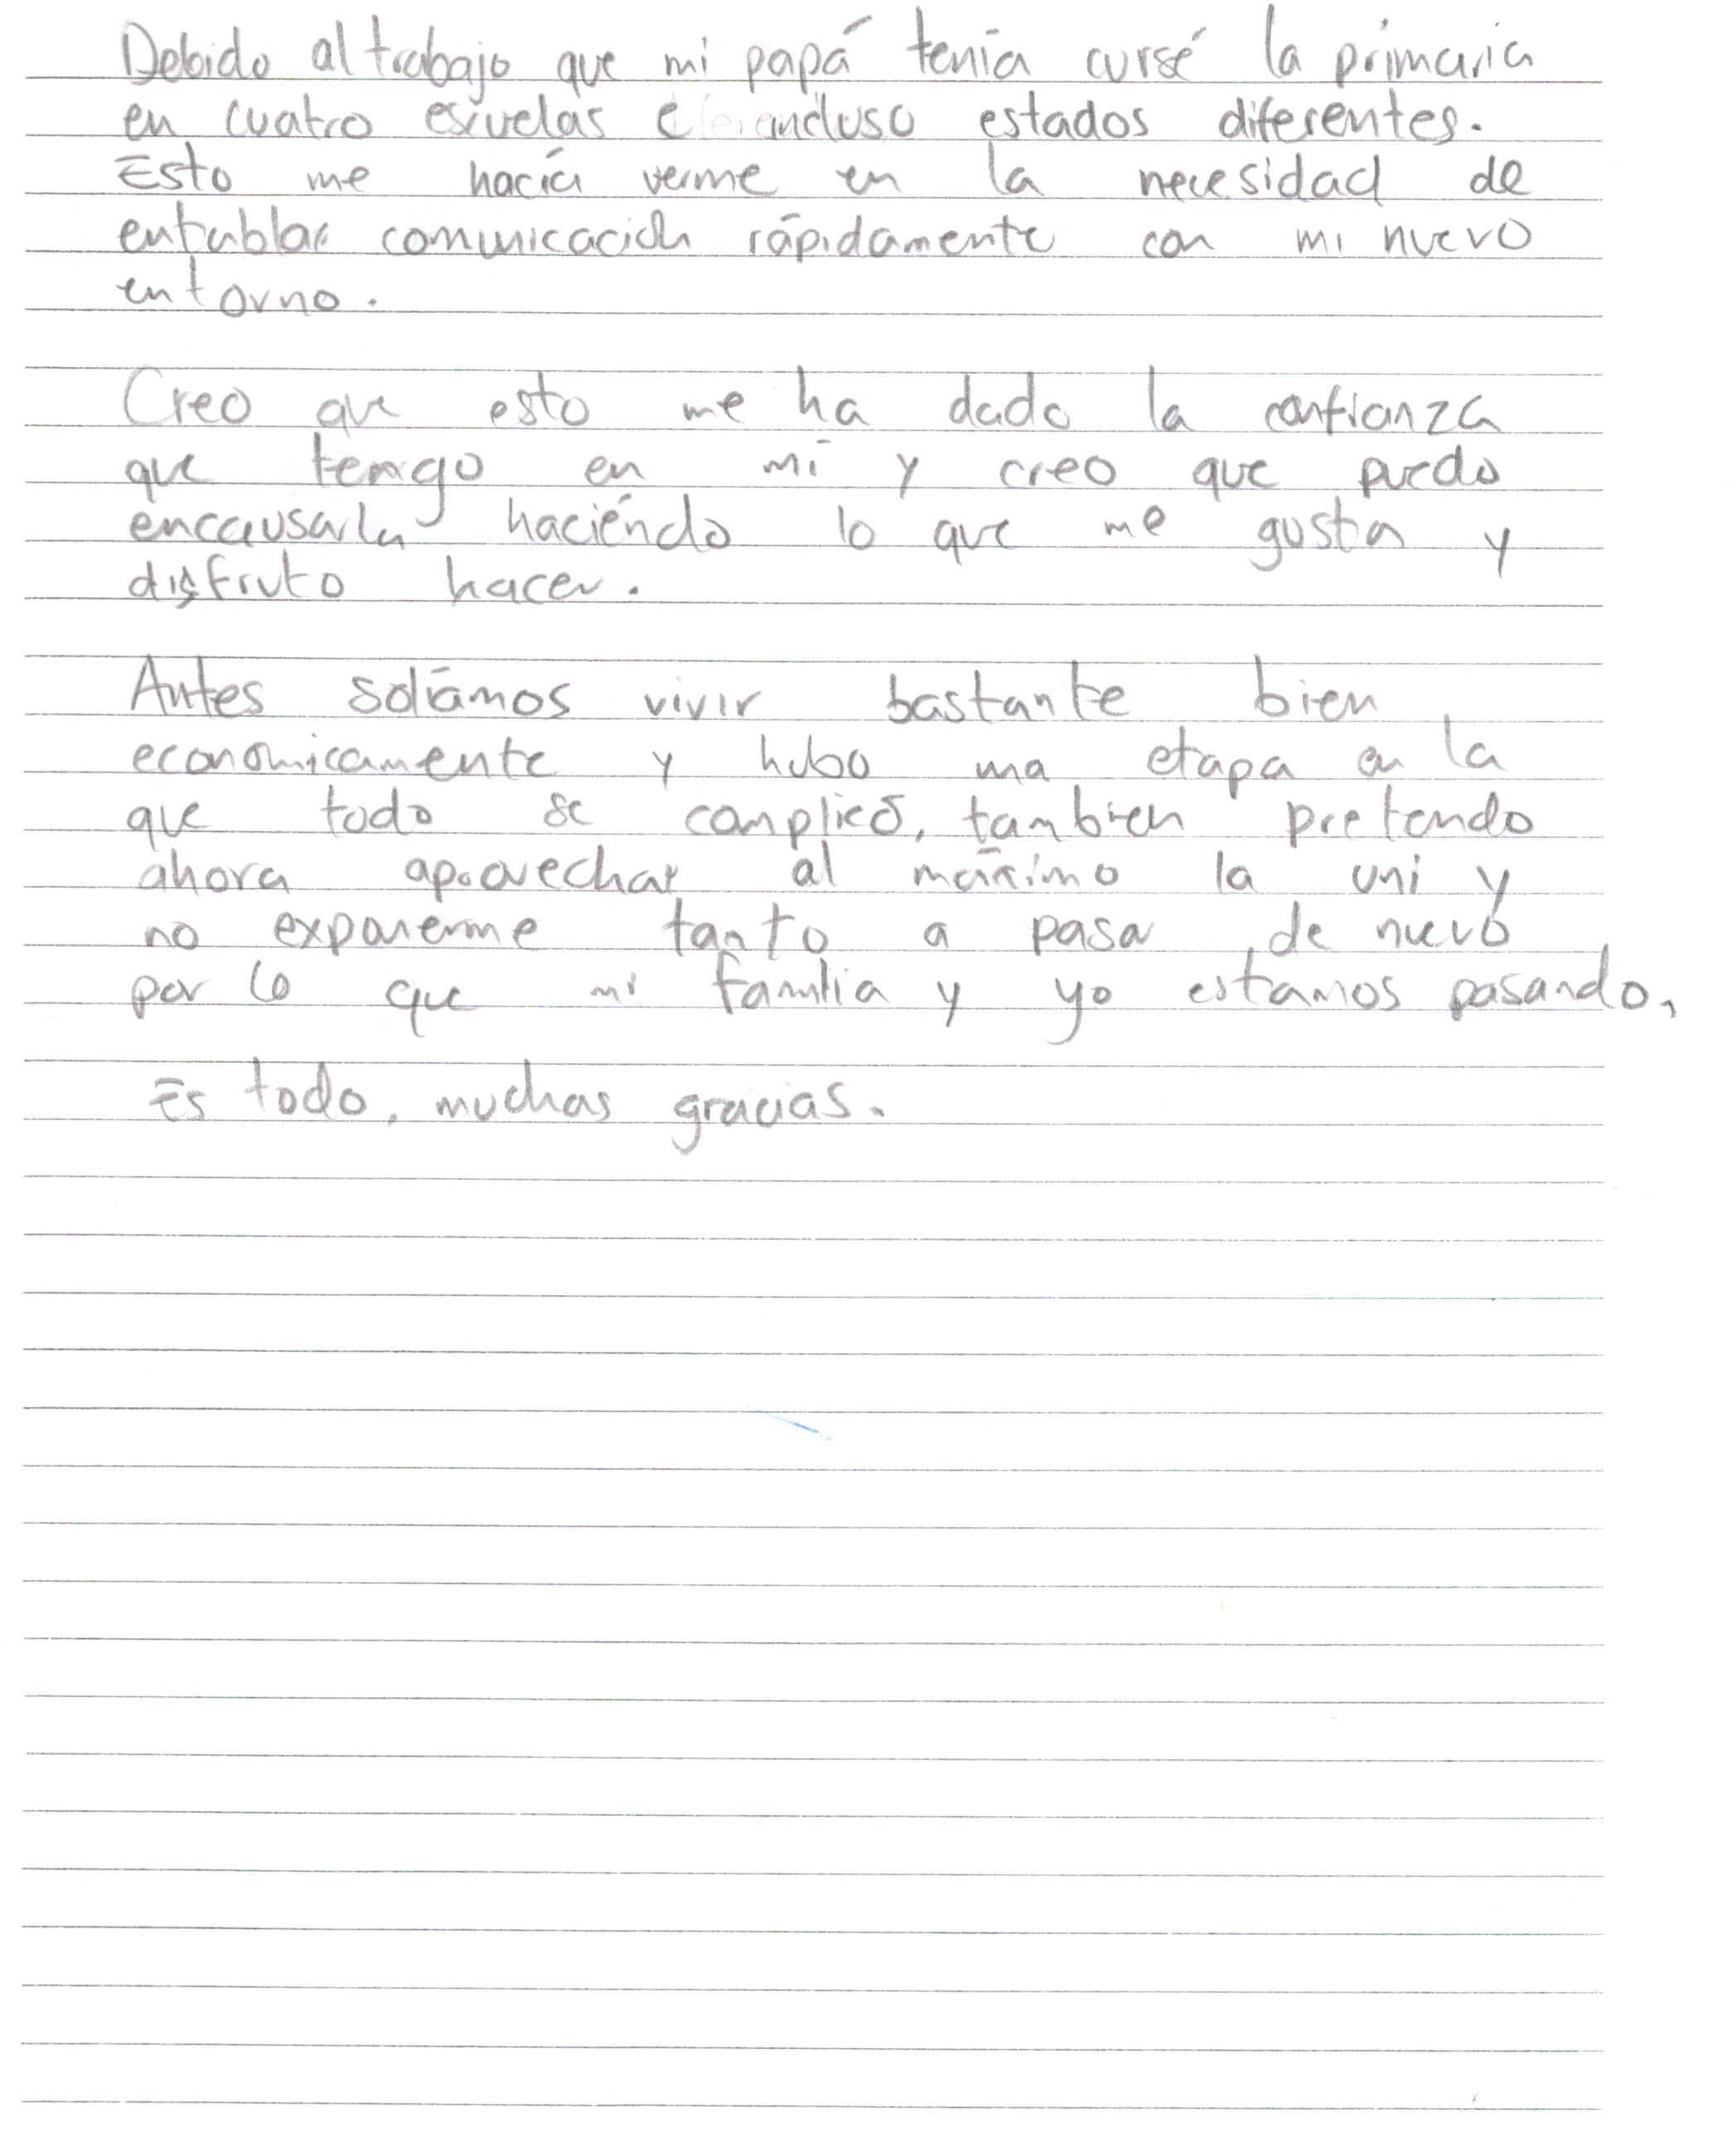 Debido al trabajo que mi papá tenía cursé la primaria
en cuatro escuelas e incluso estados diferentes.
Esto me hacía verme en la necesidad de
entablar comunicación rápidamente con mi nuevo
entorno.
Creo que esto me ha dado la confianza
que tengo en mí y creo que puedo
encausarla haciéndo lo que me gusta y
disfruto hacer.
Antes solíamos vivir bastante bien
economicamente y hubo una etapa en la
que todo se complicó, tambien pretendo
ahora aprovechar al máximo la uni y
no exponerme tanto a pasar de nuevo
por lo que mi familia y yo estamos pasando,
Es todo, muchas gracias.